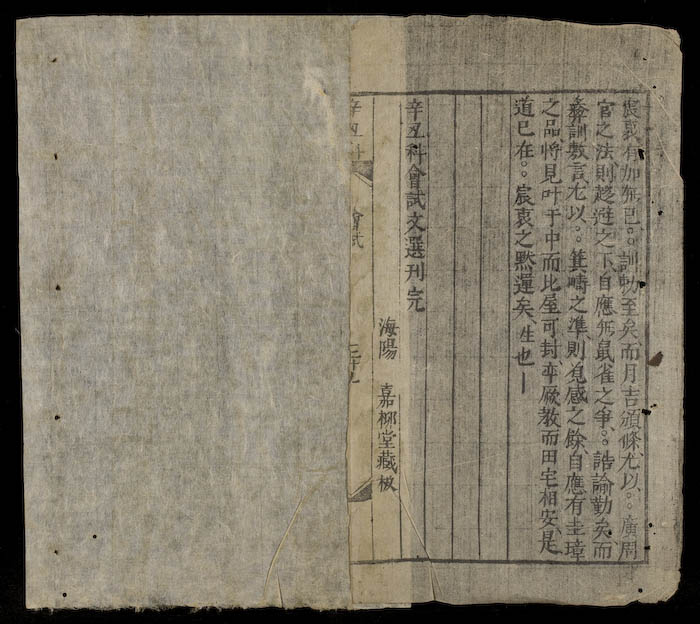 宸衷有加無已。。訓勅至矣、而月吉頒條、尤以。。廣周
官之法、則趍進之下、自應無鼠雀之爭。。誥諭勤矣、而
彝訓敷言、尤以。。箕疇之準、則覔感之餘、自應有圭璋
之品、將見叶于中而比屋可封、卒厥教而田宅相安、是
道已在。。宸衷之默運矣、生也
辛丑科會試文選刊完
海陽 嘉栁堂藏板
辛丑科 會試 三十九